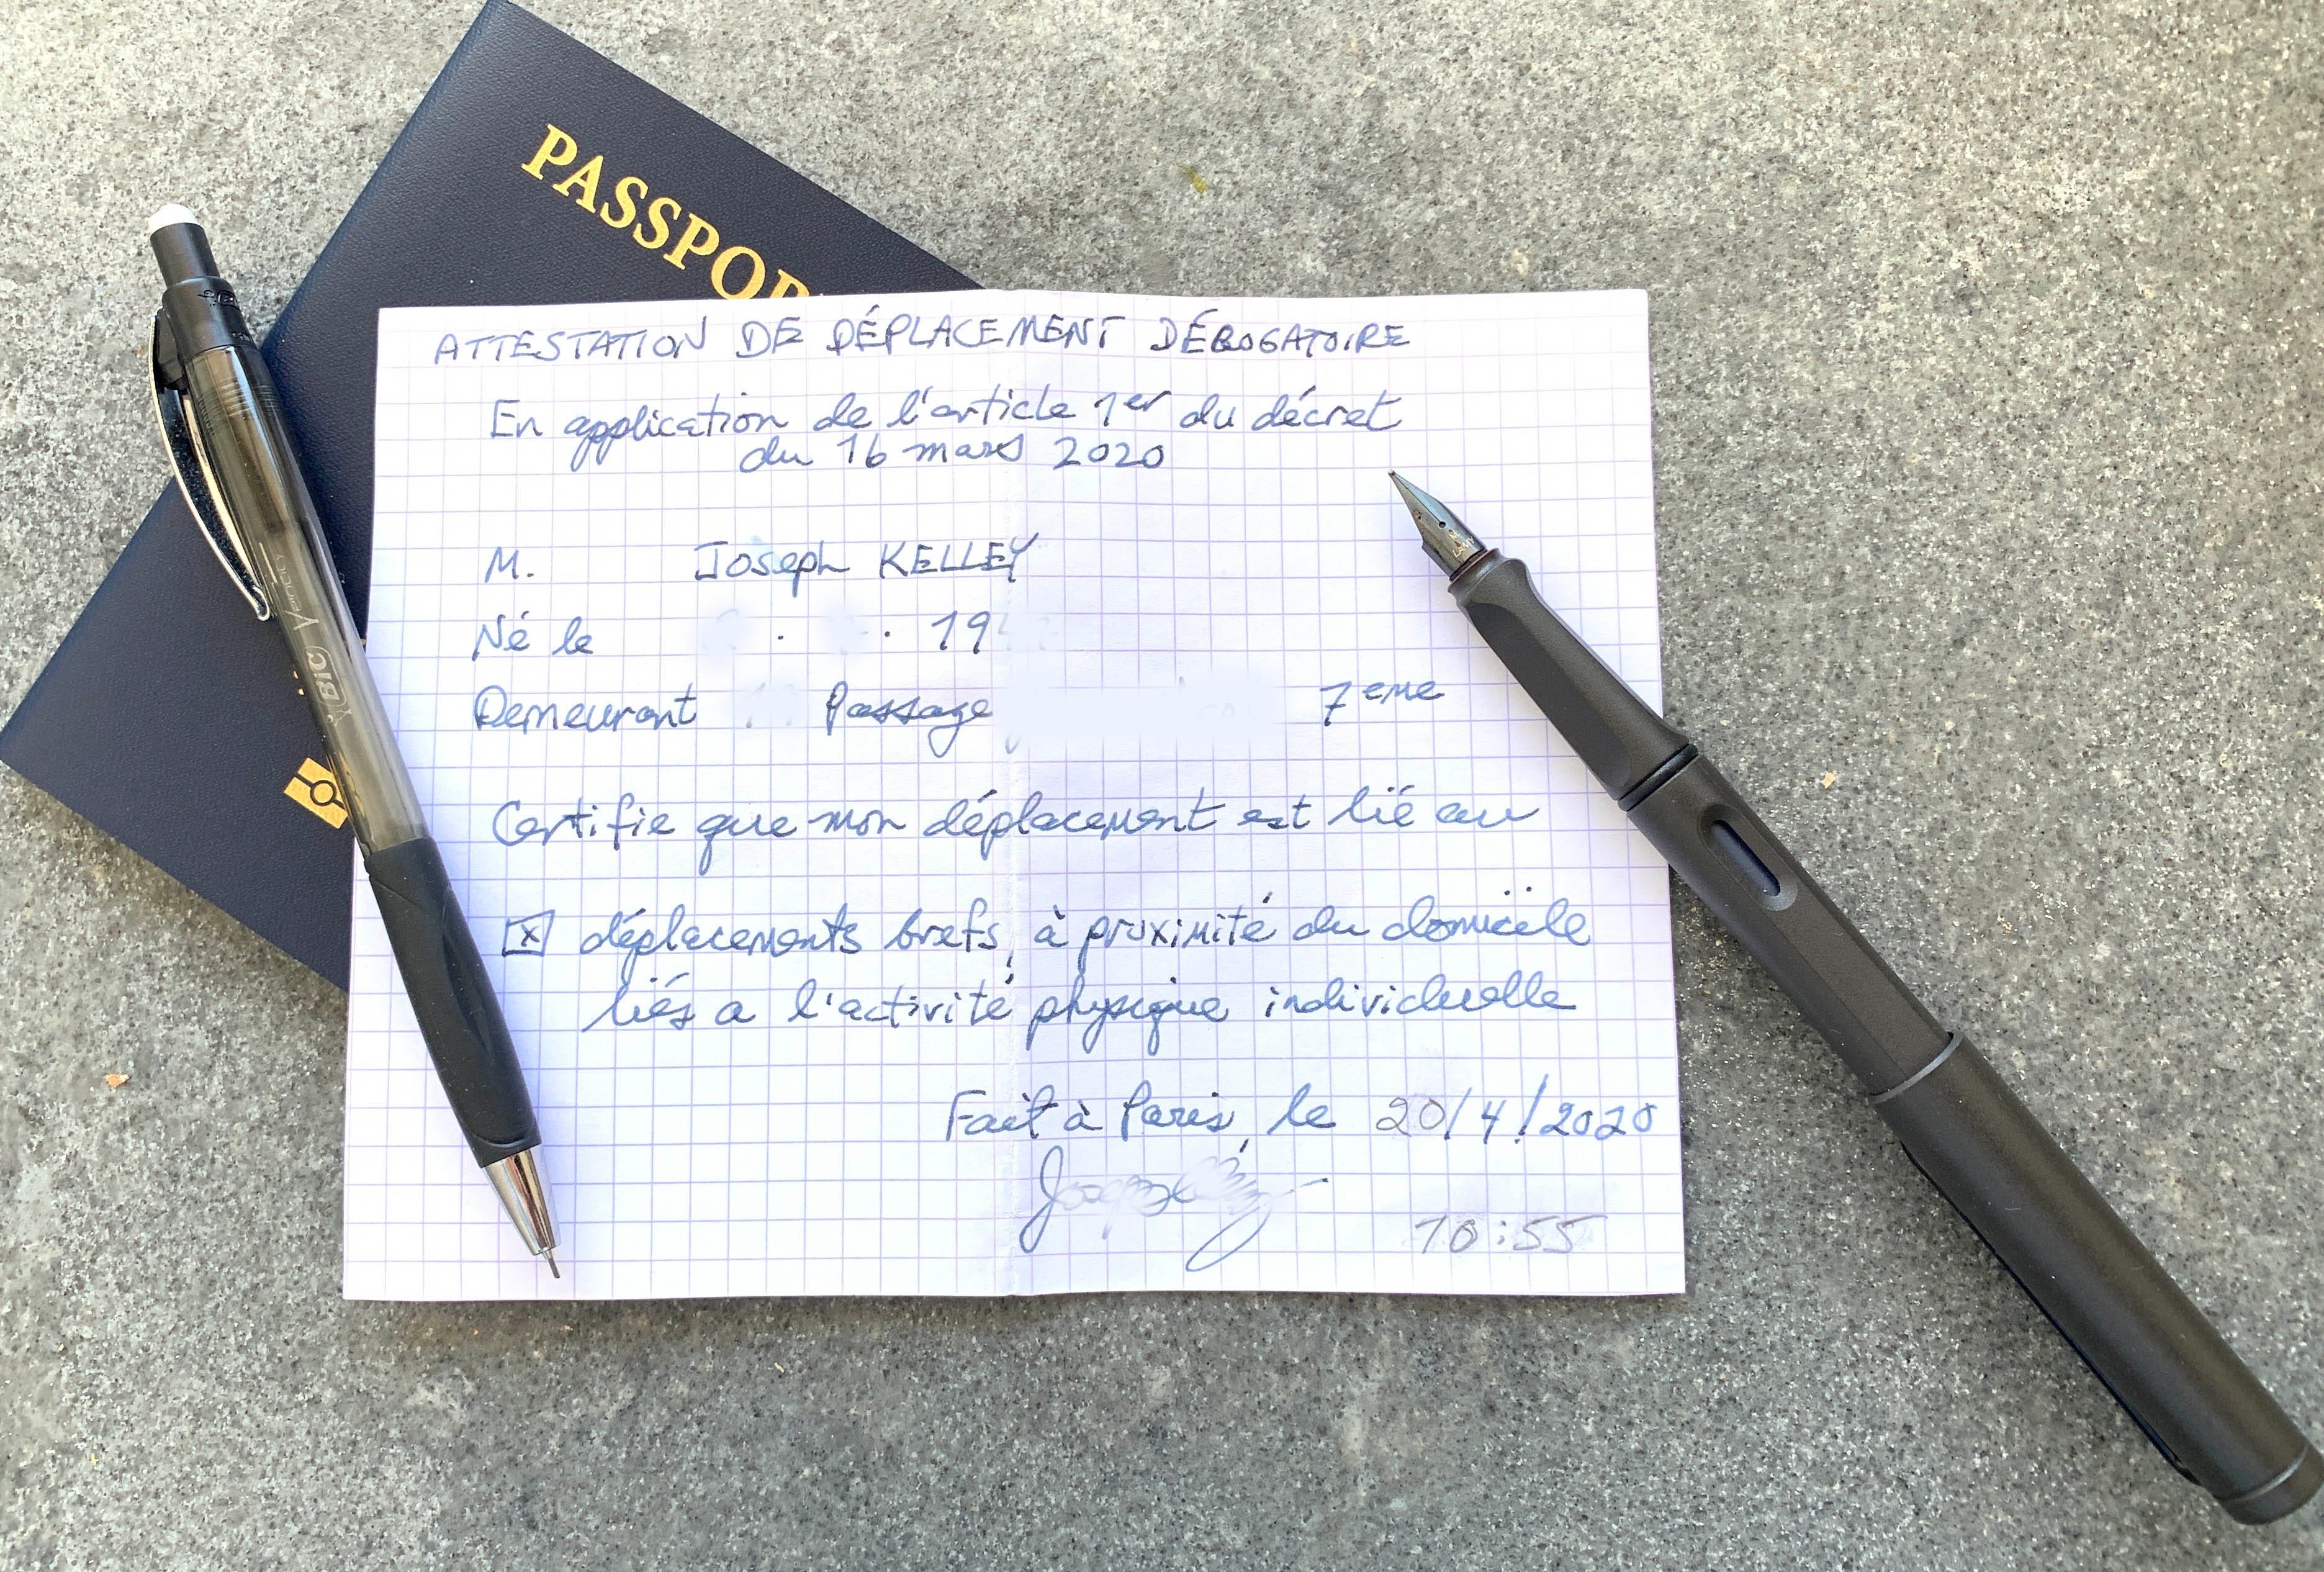 PASSPOR
ATTESTATION DE DÉPLACEMENT DÉROGATOIRE
En application de l'article 1er du décret
du 16 mars 2020
M. Joseph KELLEY
Né le . . 19
Demeurant Passage 7eme
Certifie que mon déplacement est lié au
☒ déplacements brefs, à proximité du domicile
liés a l'activité physique individuelle
Fait à Paris, le 20/4/2020
10:55
BIC
LAMY